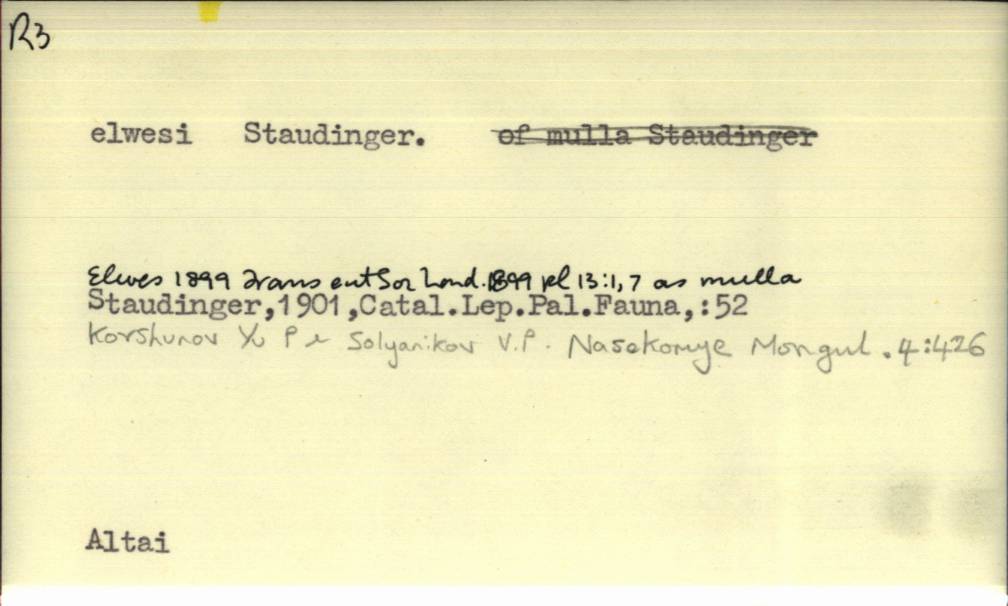 R3
elwesi Staudinger. of mulla Staudinger
Elwes 1899 Trans ent Soc Lond. 1899 pl 13:1,7 as mulla
Staudinger,1901,Catal.Lep.Pal.Fauna,:52
Korshunov Yu P & Solyanikov V.P. Nasekomye Mongul. 4:426
Altai